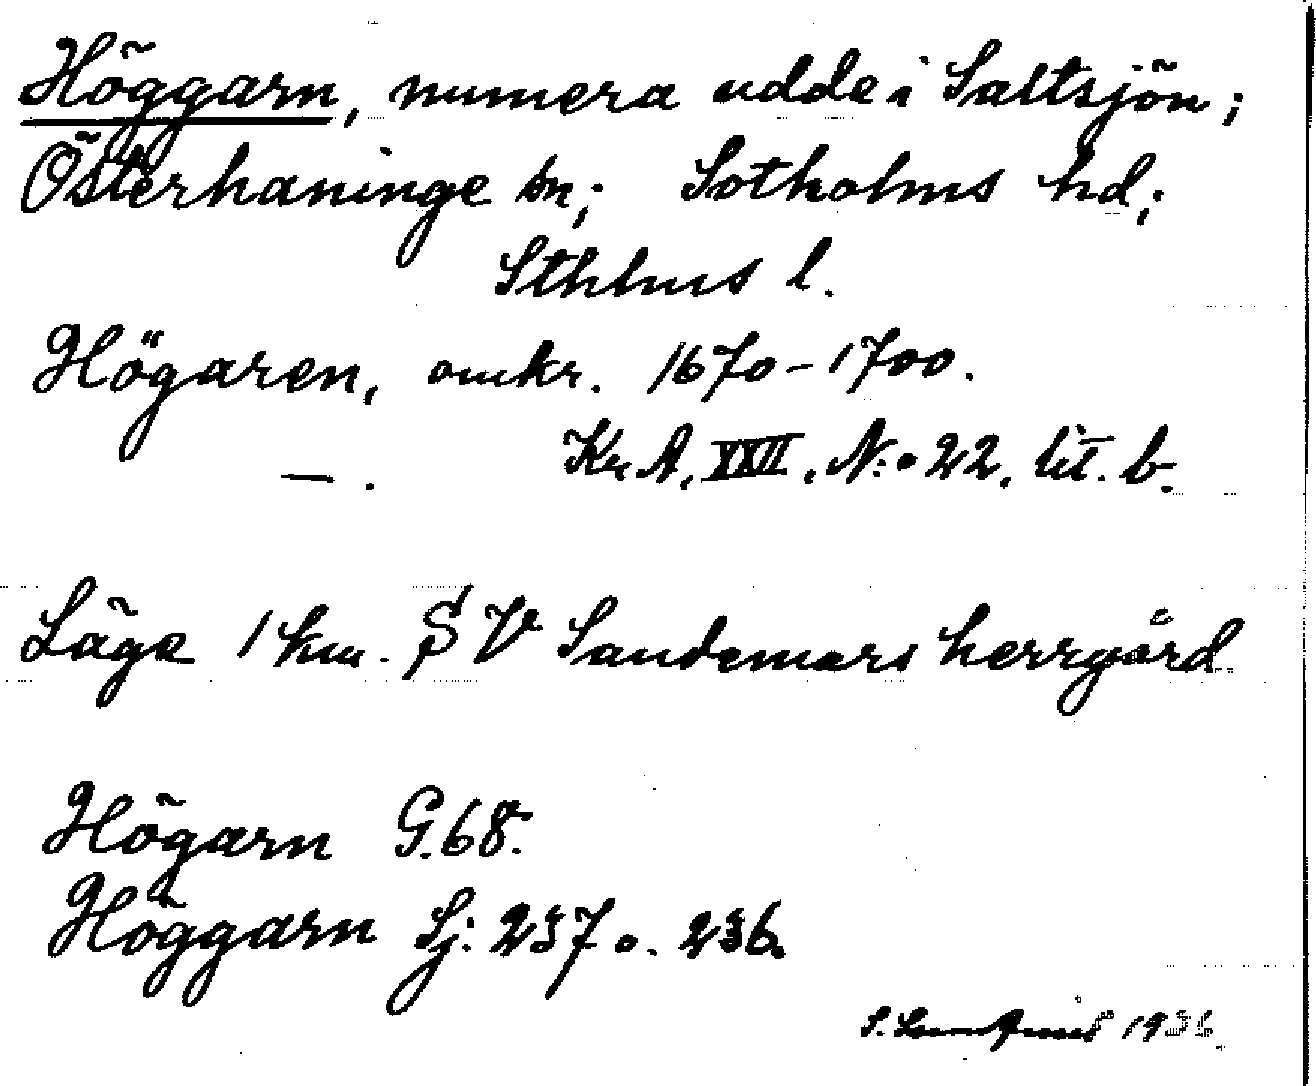 Höggarn, numera udde i Saltsjön;
Österhaninge sn; Sotholms hd;
Sthlms l.
Högaren, omkr. 1670-1700.
—. Kr. A. XXII. N:o 22. lit. b.
Läge 1 km. SV Sandemars herrgård
Högarn G. 68.
Höggarn Sj: 237 o. 236.
S. 1936.